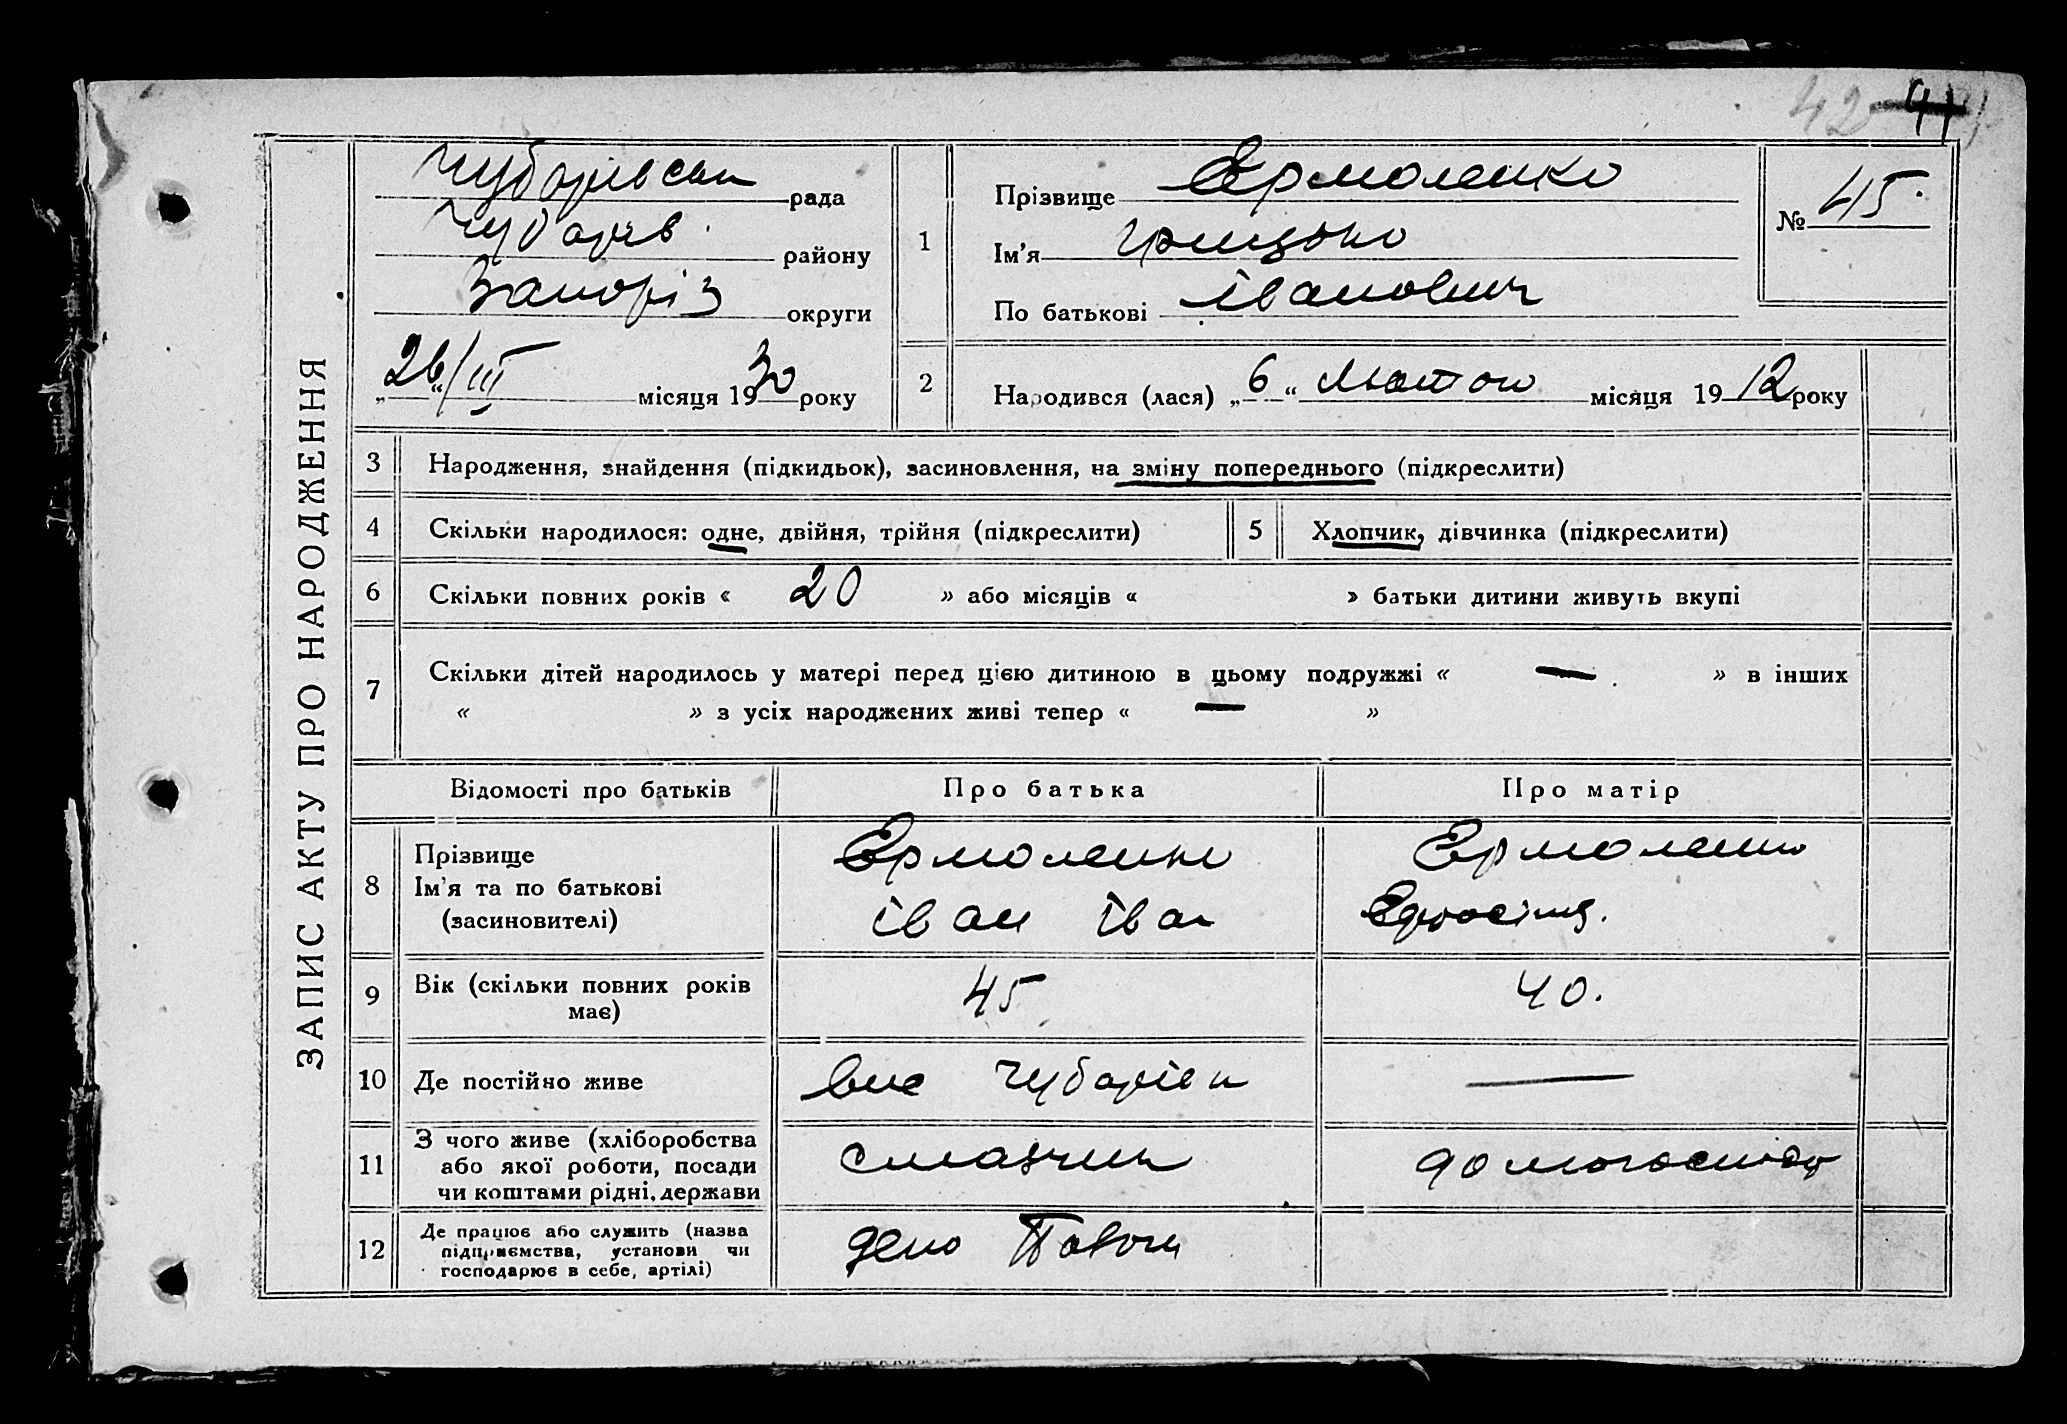 42 41
ЗАПИС АКТУ ПРО НАРОДЖЕННЯ
Чубарівськ рада
Чубарів. району
Запоріз округи
„26“/III місяця 1930 року
1
Прізвище Єрмоленко
Ім'я Грицько
По батькові Іванович
№ 45.
2 Народився (лася) „6“ Лютого місяця 1912 року
3 Народження, знайдення (підкидьок), засиновлення, на зміну попереднього (підкреслити)
4 Скільки народилося: одне, двійня, трійня (підкреслити)
5 Хлопчик, дівчинка (підкреслити)
6 Скільки повних років « 20 » або місяців « » батьки дитини живуть вкупі
7 Скільки дітей народилось у матері перед цією дитиною в цьому подружжі « — » в інших
« » з усіх народжених живі тепер « — »
Відомості про батьків Про батька Про матір
8 Прізвище
Ім'я та по батькові
(засиновителі)
Єрмоленко
Іван Іван
Єрмоленко
9 Вік (скільки повних років
має)
45
40.
10 Де постійно живе
Чубарівк —
11 З чого живе (хліборобства
або якої роботи, посади
чи коштами рідні, держави
смазчик
домогоспод
12 Де працює або служить (назва
підприємства, установи чи
господарює в себе, артілі)
депо Пологи